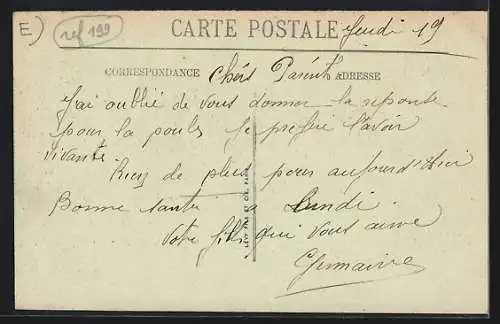 E)
ref 199
CARTE POSTALE Jeudi 19
CORRESPONDANCE Chers Parents ADRESSE
J'ai oublié de vous donner la reponse
pour la poule, je prefere l'avoir
vivante.
Rien de plus pour aujourd'hui
Bonne santé a lundi
Votre fille qui vous aime
Germaine